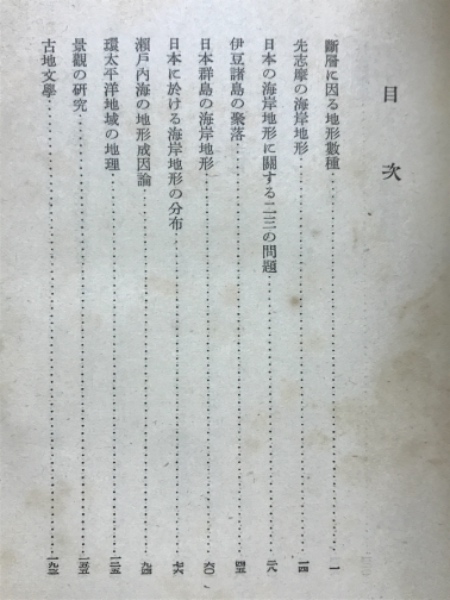 目次
斷層に因る地形數種……一
先志摩の海岸地形……一四
日本の海岸地形に關する二三の問題……二八
伊豆諸島の聚落……四三
日本群島の海岸地形……六〇
日本に於ける海岸地形の分布……七六
瀨戸內海の地形成因論……九四
環太平洋地域の地理……一二五
景觀の研究……一五五
古地文學……一九三